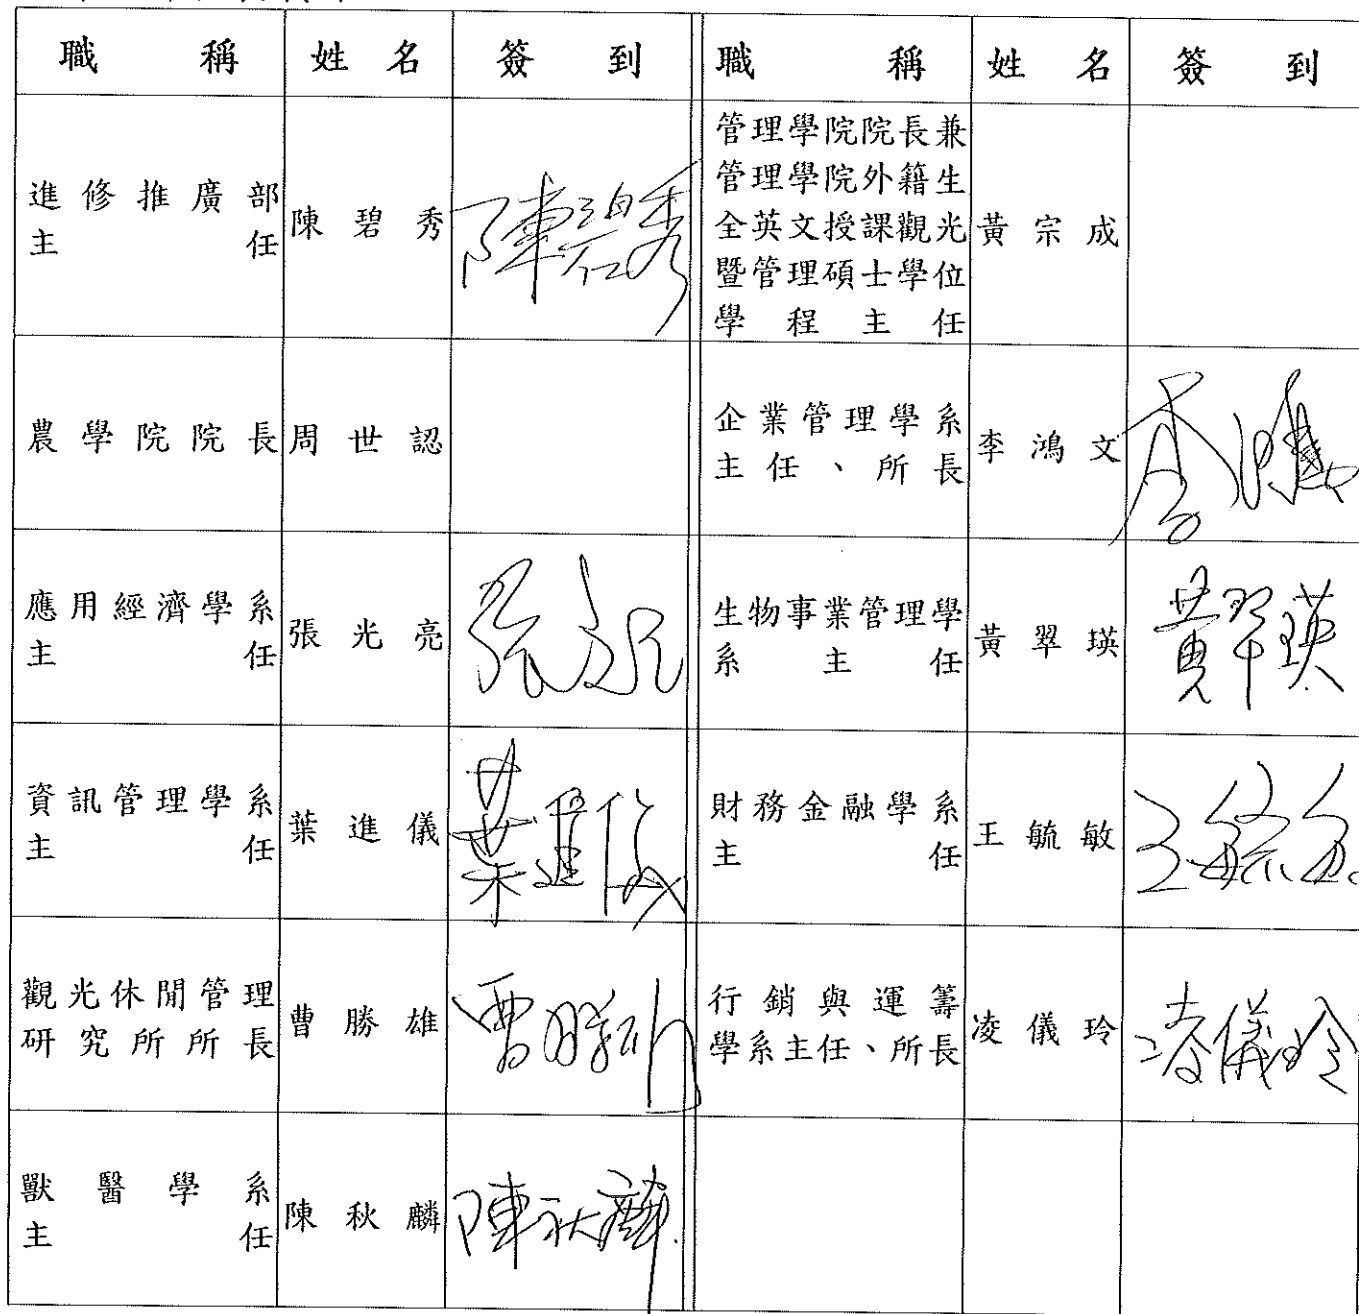 職稱 姓名 簽到 職稱 姓名 簽到
進修推廣部
主任
陳碧秀
陳碧秀
管理學院院長兼
管理學院外籍生
全英文授課觀光
暨管理碩士學位
學程主任
黃宗成
農學院院長
周世認
企業管理學系
主任、所長
李鴻文
應用經濟學系
主任
張光亮
生物事業管理學
系主任
黃翠瑛
黃翠瑛
資訊管理學系
主任
葉進儀
葉進儀
財務金融學系
主任
王毓敏
王毓敏
觀光休閒管理
研究所所長
曹勝雄
曹勝雄
行銷與運籌
學系主任、所長
凌儀玲
凌儀玲
獸醫學系
主任
陳秋麟
陳秋麟